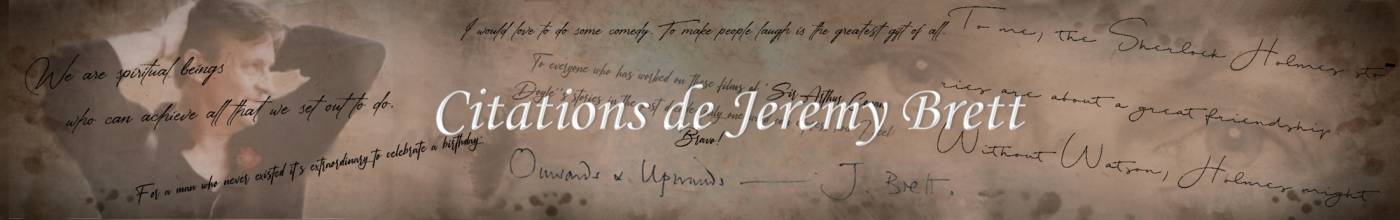 We are spiritual beings
who can achieve all that we set out to do.
For a man who never existed it's extraordinary to celebrate a birthday.
I would love to do some comedy. To make people laugh is the greatest gift of all.
To everyone who has worked on those films of 'Sir Arthur Conan
Doyle's stories in the
Bravo!
Citations de Jeremy Brett
Onwards & Upwards — J. Brett.
To me, the Sherlock Holmes sto-
ries are about a great friendship.
Without Watson, Holmes might